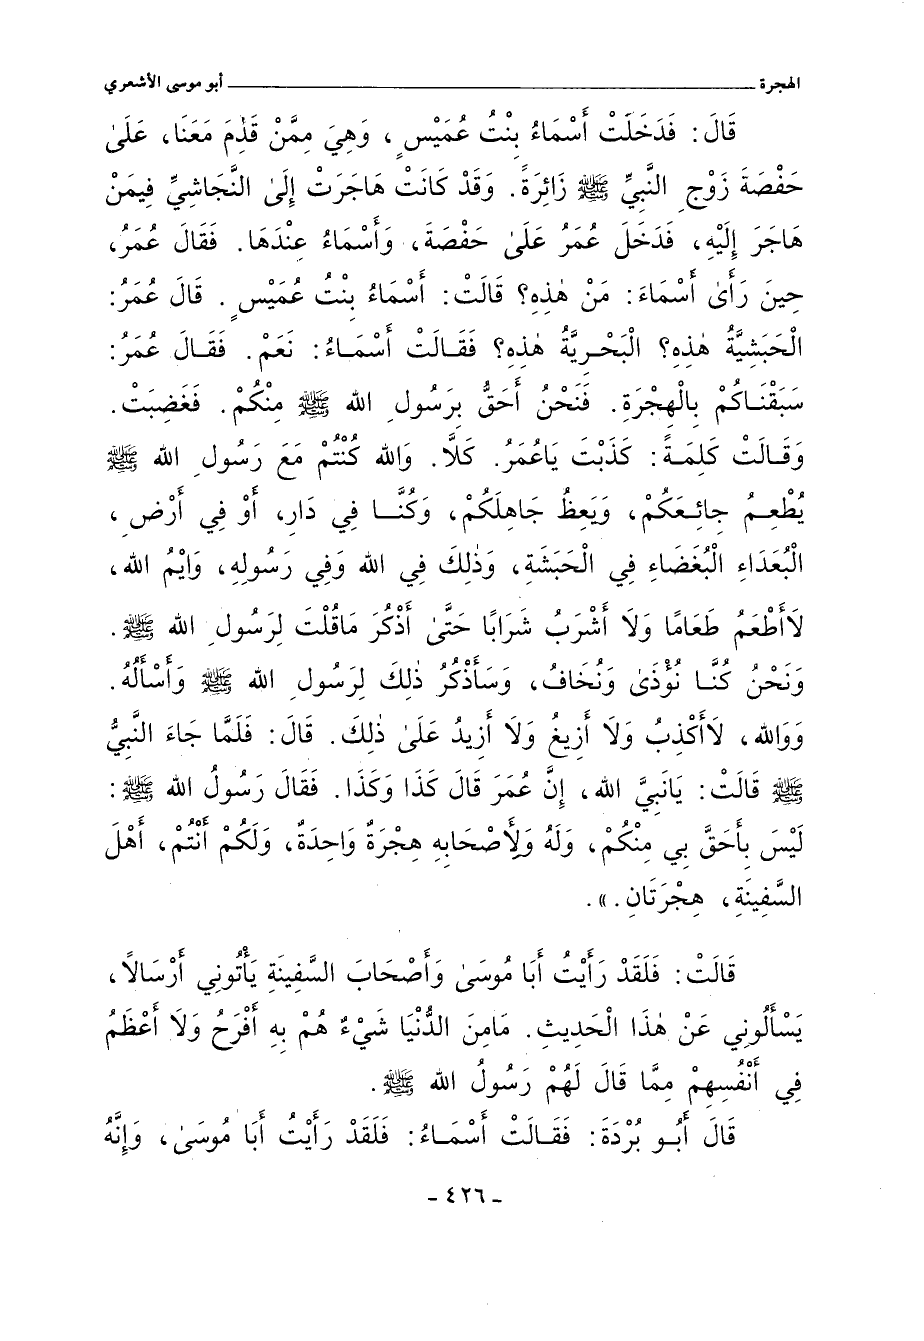 الهجرة أبو موسى الأشعري
قَالَ: فَدَخَلَتْ أَسْمَاءُ بِنْتُ عُمَيْسٍ، وَهِيَ مِمَّنْ قَدِمَ مَعَنَا، عَلَىٰ
حَفْصَةَ زَوْجِ النَّبِيِّ ﷺ زَائِرَةً. وَقَدْ كَانَتْ هَاجَرَتْ إِلَىٰ النَّجَاشِيِّ فِيمَنْ
هَاجَرَ إِلَيْهِ، فَدَخَلَ عُمَرُ عَلَىٰ حَفْصَةَ، وَأَسْمَاءُ عِنْدَهَا. فَقَالَ عُمَرُ،
حِينَ رَأَىٰ أَسْمَاءَ: مَنْ هٰذِهِ؟ قَالَتْ: أَسْمَاءُ بِنْتُ عُمَيْسٍ. قَالَ عُمَرُ:
الْحَبَشِيَّةُ هٰذِهِ؟ الْبَحْرِيَّةُ هٰذِهِ؟ فَقَالَتْ أَسْمَاءُ: نَعَمْ. فَقَالَ عُمَرُ:
سَبَقْنَاكُمْ بِالْهِجْرَةِ. فَنَحْنُ أَحَقُّ بِرَسُولِ اللهِ ﷺ مِنْكُمْ. فَغَضِبَتْ.
وَقَالَتْ كَلِمَةً: كَذَبْتَ يَاعُمَرُ. كَلَّا. وَاللهِ كُنْتُمْ مَعَ رَسُولِ اللهِ ﷺ
يُطْعِمُ جائِعَكُمْ، وَيَعِظُ جَاهِلَكُمْ، وَكُنَّا فِي دَارِ، أَوْ فِي أَرْضِ،
الْبُعَدَاءِ الْبُغَضَاءِ فِي الْحَبَشَةِ، وَذٰلِكَ فِي اللهِ وَفِي رَسُولِهِ، وَايْمُ اللهِ،
لَاأَطْعَمُ طَعَامًا وَلَا أَشْرَبُ شَرَابًا حَتَّىٰ أَذْكُرَ مَاقُلْتَ لِرَسُولِ اللهِ ﷺ.
وَنَحْنُ كُنَّا نُؤْذَىٰ وَنُخَافُ، وَسَأَذْكُرُ ذٰلِكَ لِرَسُولِ اللهِ ﷺ وَأَسْأَلُهُ.
وَوَاللهِ، لَاأَكْذِبُ وَلَا أَزِيغُ وَلَا أَزِيدُ عَلَىٰ ذٰلِكَ. قَالَ: فَلَمَّا جَاءَ النَّبِيُّ
ﷺ قَالَتْ: يَانَبِيَّ اللهِ، إِنَّ عُمَرَ قَالَ كَذَا وَكَذَا. فَقَالَ رَسُولُ اللهِ ﷺ:
لَيْسَ بِأَحَقَّ بِي مِنْكُمْ، وَلَهُ وَلِأَصْحَابِهِ هِجْرَةٌ وَاحِدَةٌ، وَلَكُمْ أَنْتُمْ، أَهْلَ
السَّفِينَةِ، هِجْرَتَانِ.».
قَالَتْ: فَلَقَدْ رَأَيْتُ أَبَا مُوسَىٰ وَأَصْحَابَ السَّفِينَةِ يَأْتُونِي أَرْسَالًا،
يَسْأَلُونِي عَنْ هٰذَا الْحَدِيثِ. مَامِنَ الدُّنْيَا شَيْءٌ هُمْ بِهِ أَفْرَحُ وَلَا أَعْظَمُ
فِي أَنْفُسِهِمْ مِمَّا قَالَ لَهُمْ رَسُولُ اللهِ ﷺ.
قَالَ أَبُو بُرْدَةَ: فَقَالَتْ أَسْمَاءُ: فَلَقَدْ رَأَيْتُ أَبَا مُوسَىٰ، وَإِنَّهُ
- ٤٢٦ -